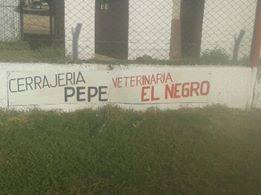 CERRAJERIA
PEPE
VETERINARIA
EL NEGRO